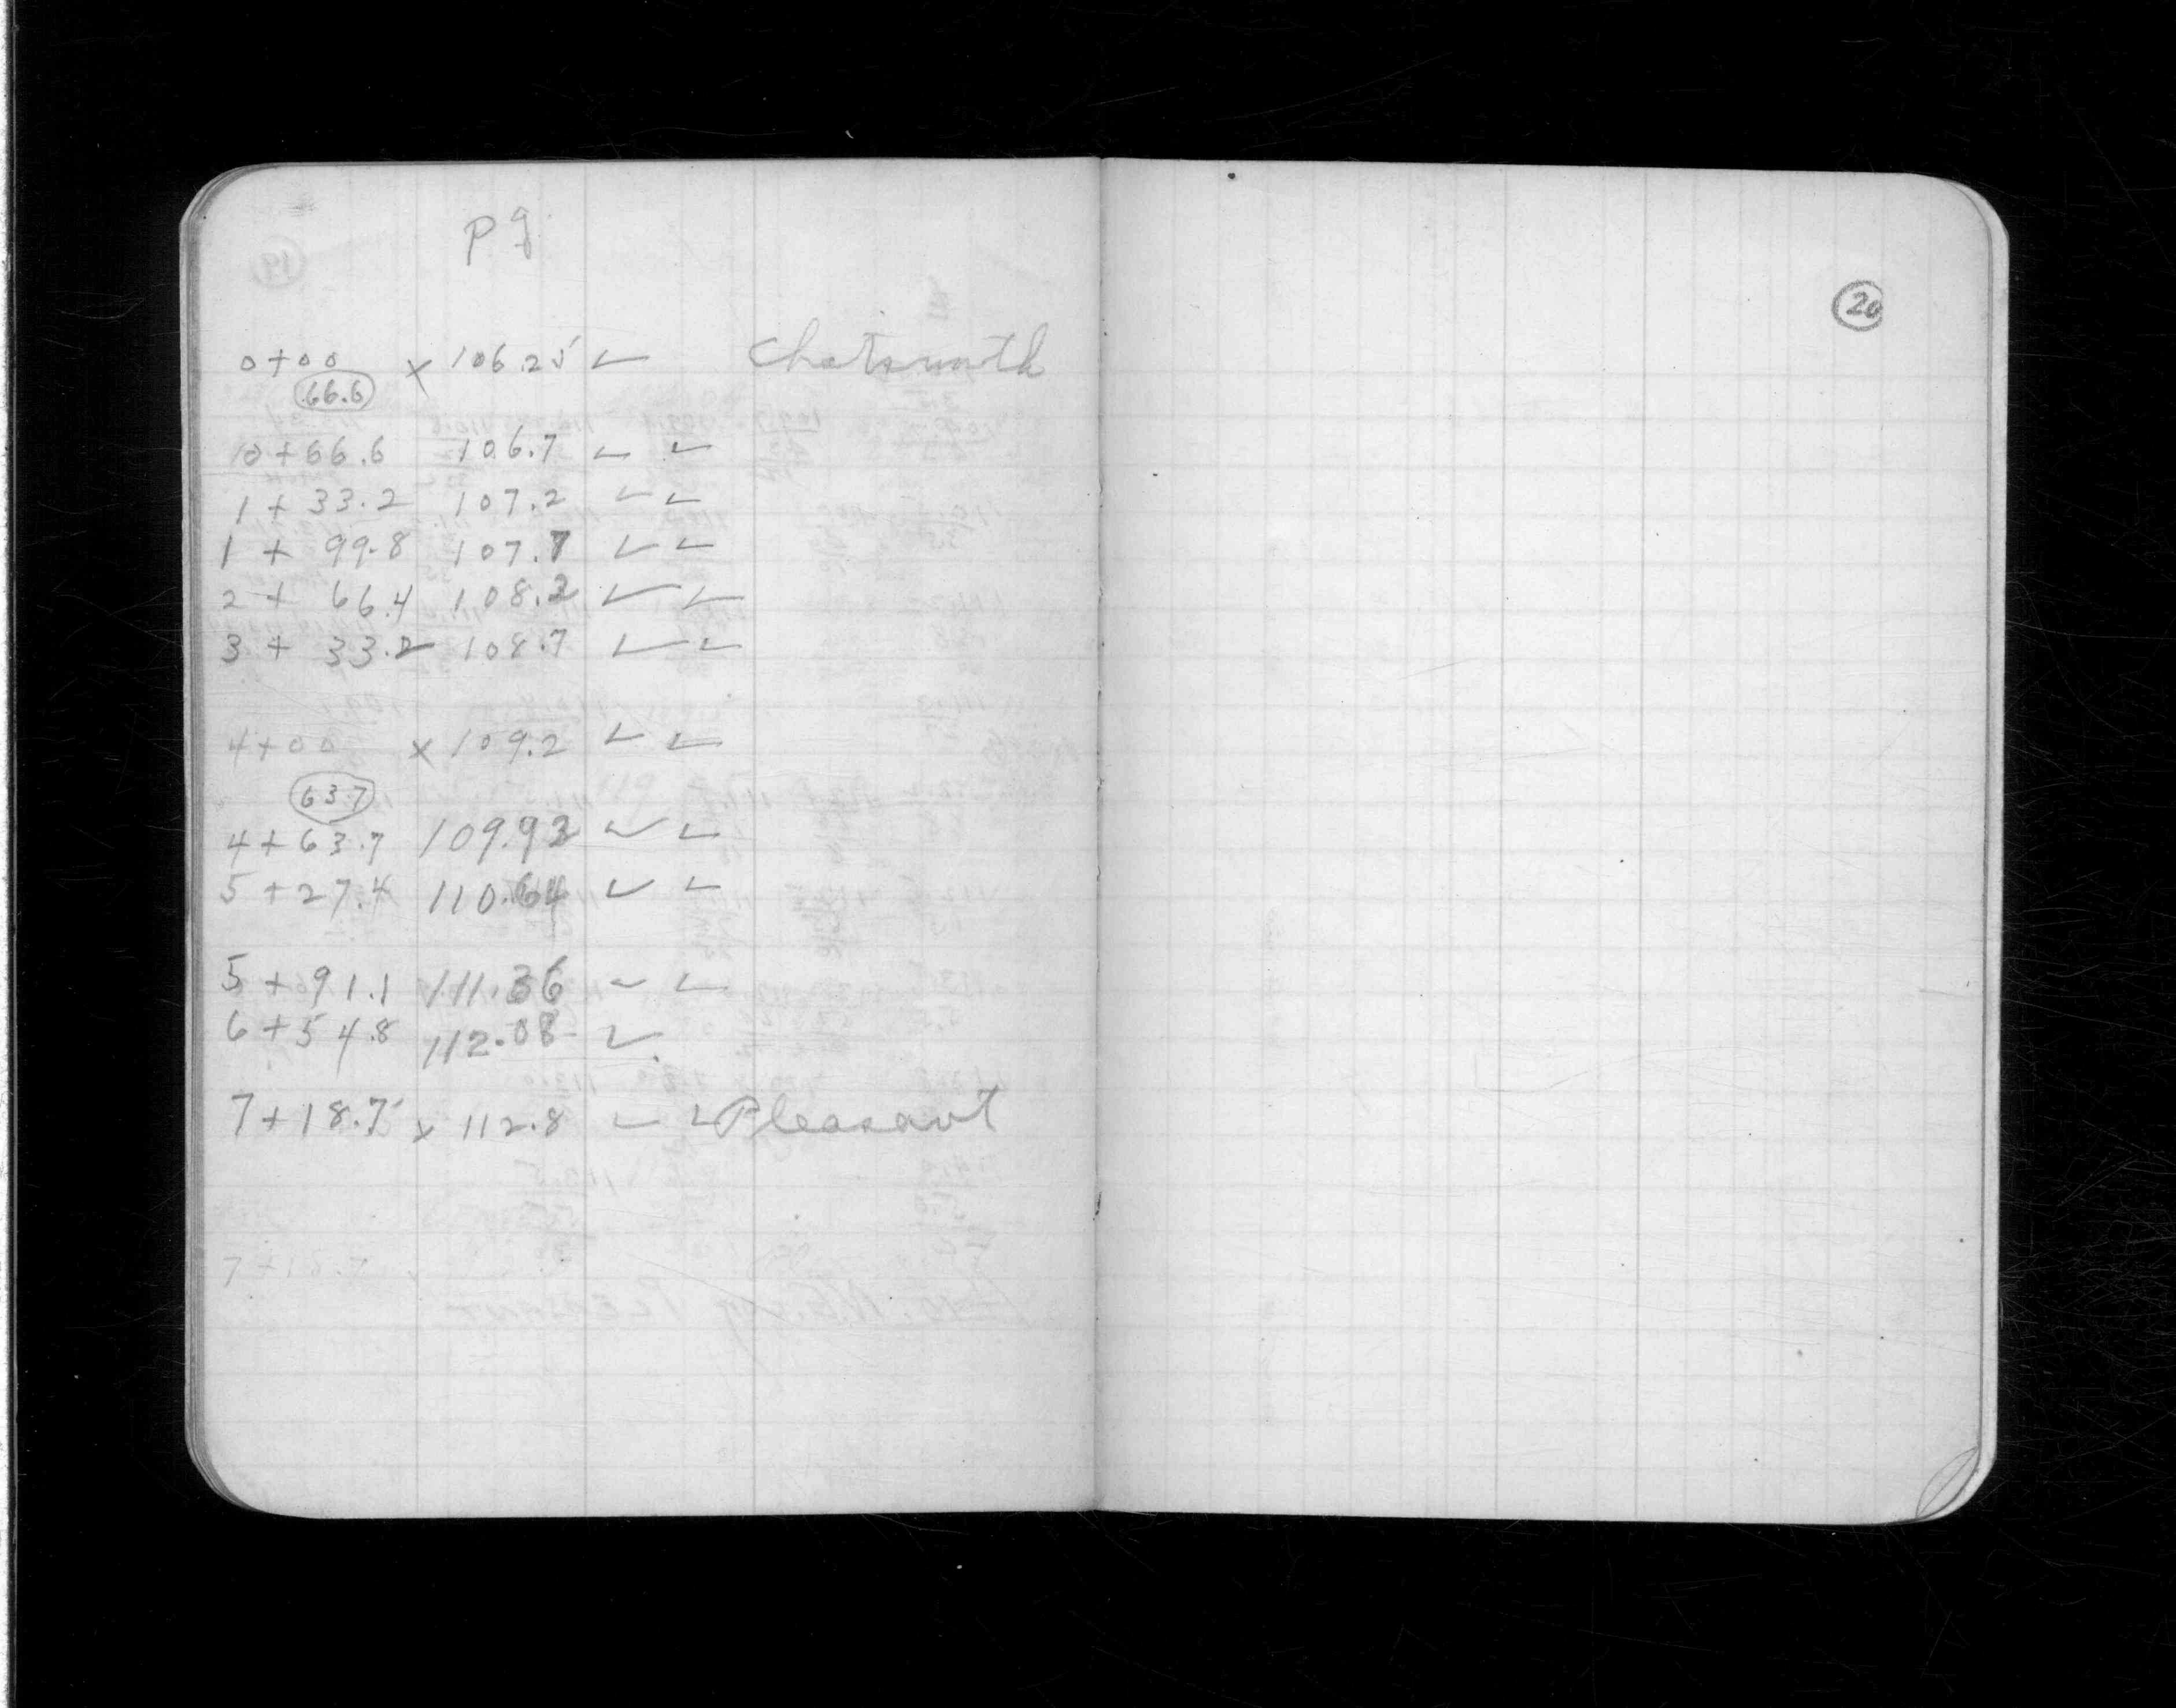 p 9
20
0+00 x 106.25 ✓ Chatsworth
66.6
0+66.6 106.7 ✓ ✓
1 + 33.2 107.2 ✓ ✓
1 + 99.8 107.7 ✓ ✓
2 + 66.4 108.2 ✓ ✓
3 + 33.2 108.7 ✓ ✓
4+00 x 109.2 ✓ ✓
63.7
4+63.7 109.93 ✓ ✓
5+27.4 110.64 ✓ ✓
5+91.1 111.36 ✓ ✓
6+54.8 112.08 ✓
7+18.7 x 112.8 ✓ ✓ Pleasant